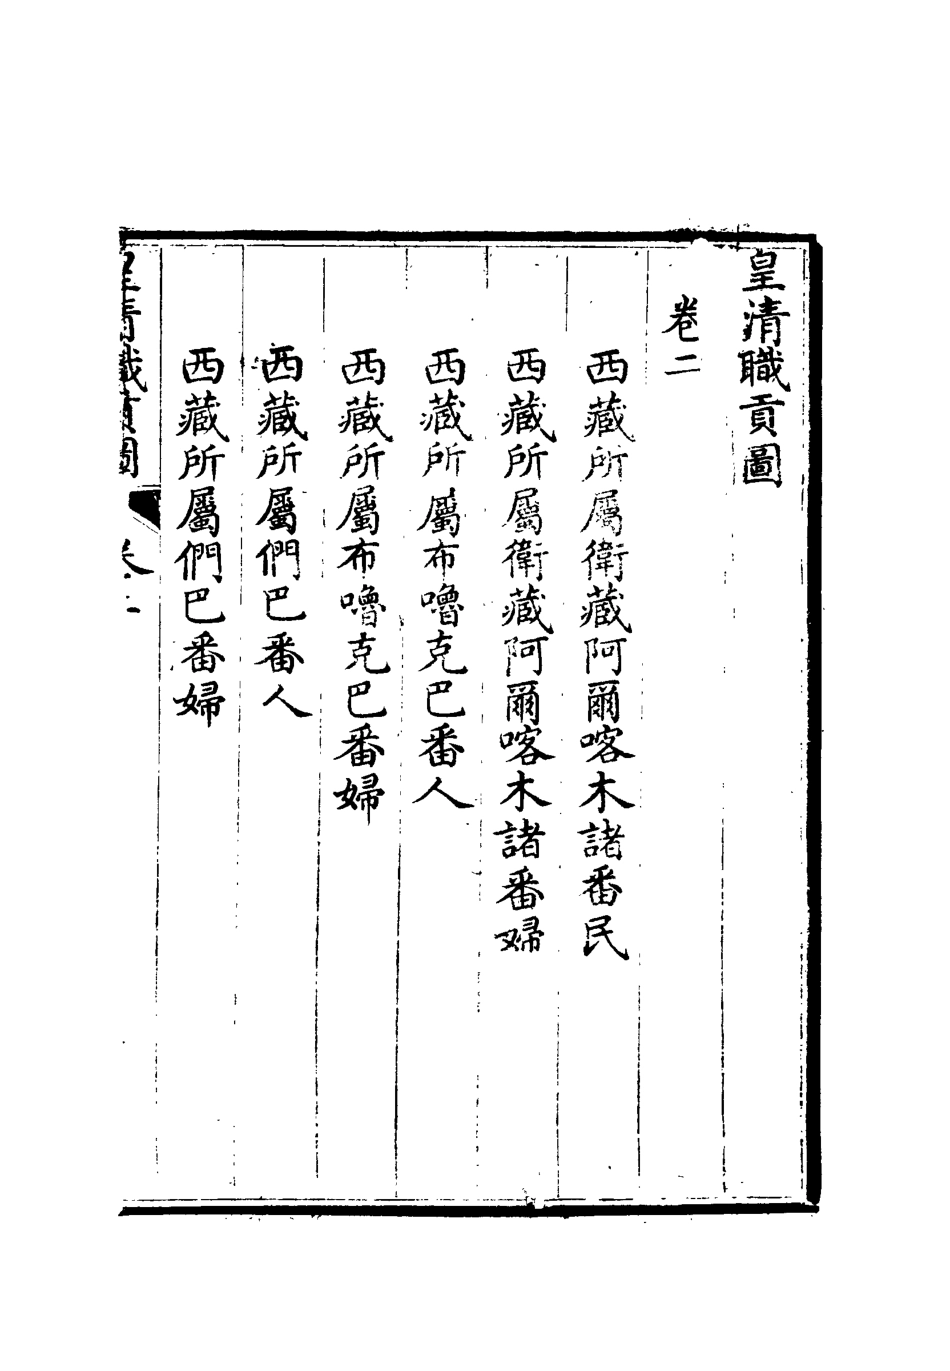 皇清職貢圖
卷二
西藏所屬衛藏阿爾喀木諸番民
西藏所屬衛藏阿爾喀木諸番婦
西藏所屬布嚕克巴番人
西藏所屬布嚕克巴番婦
西藏所屬們巴番人
西藏所屬們巴番婦
皇清職貢圖 卷二